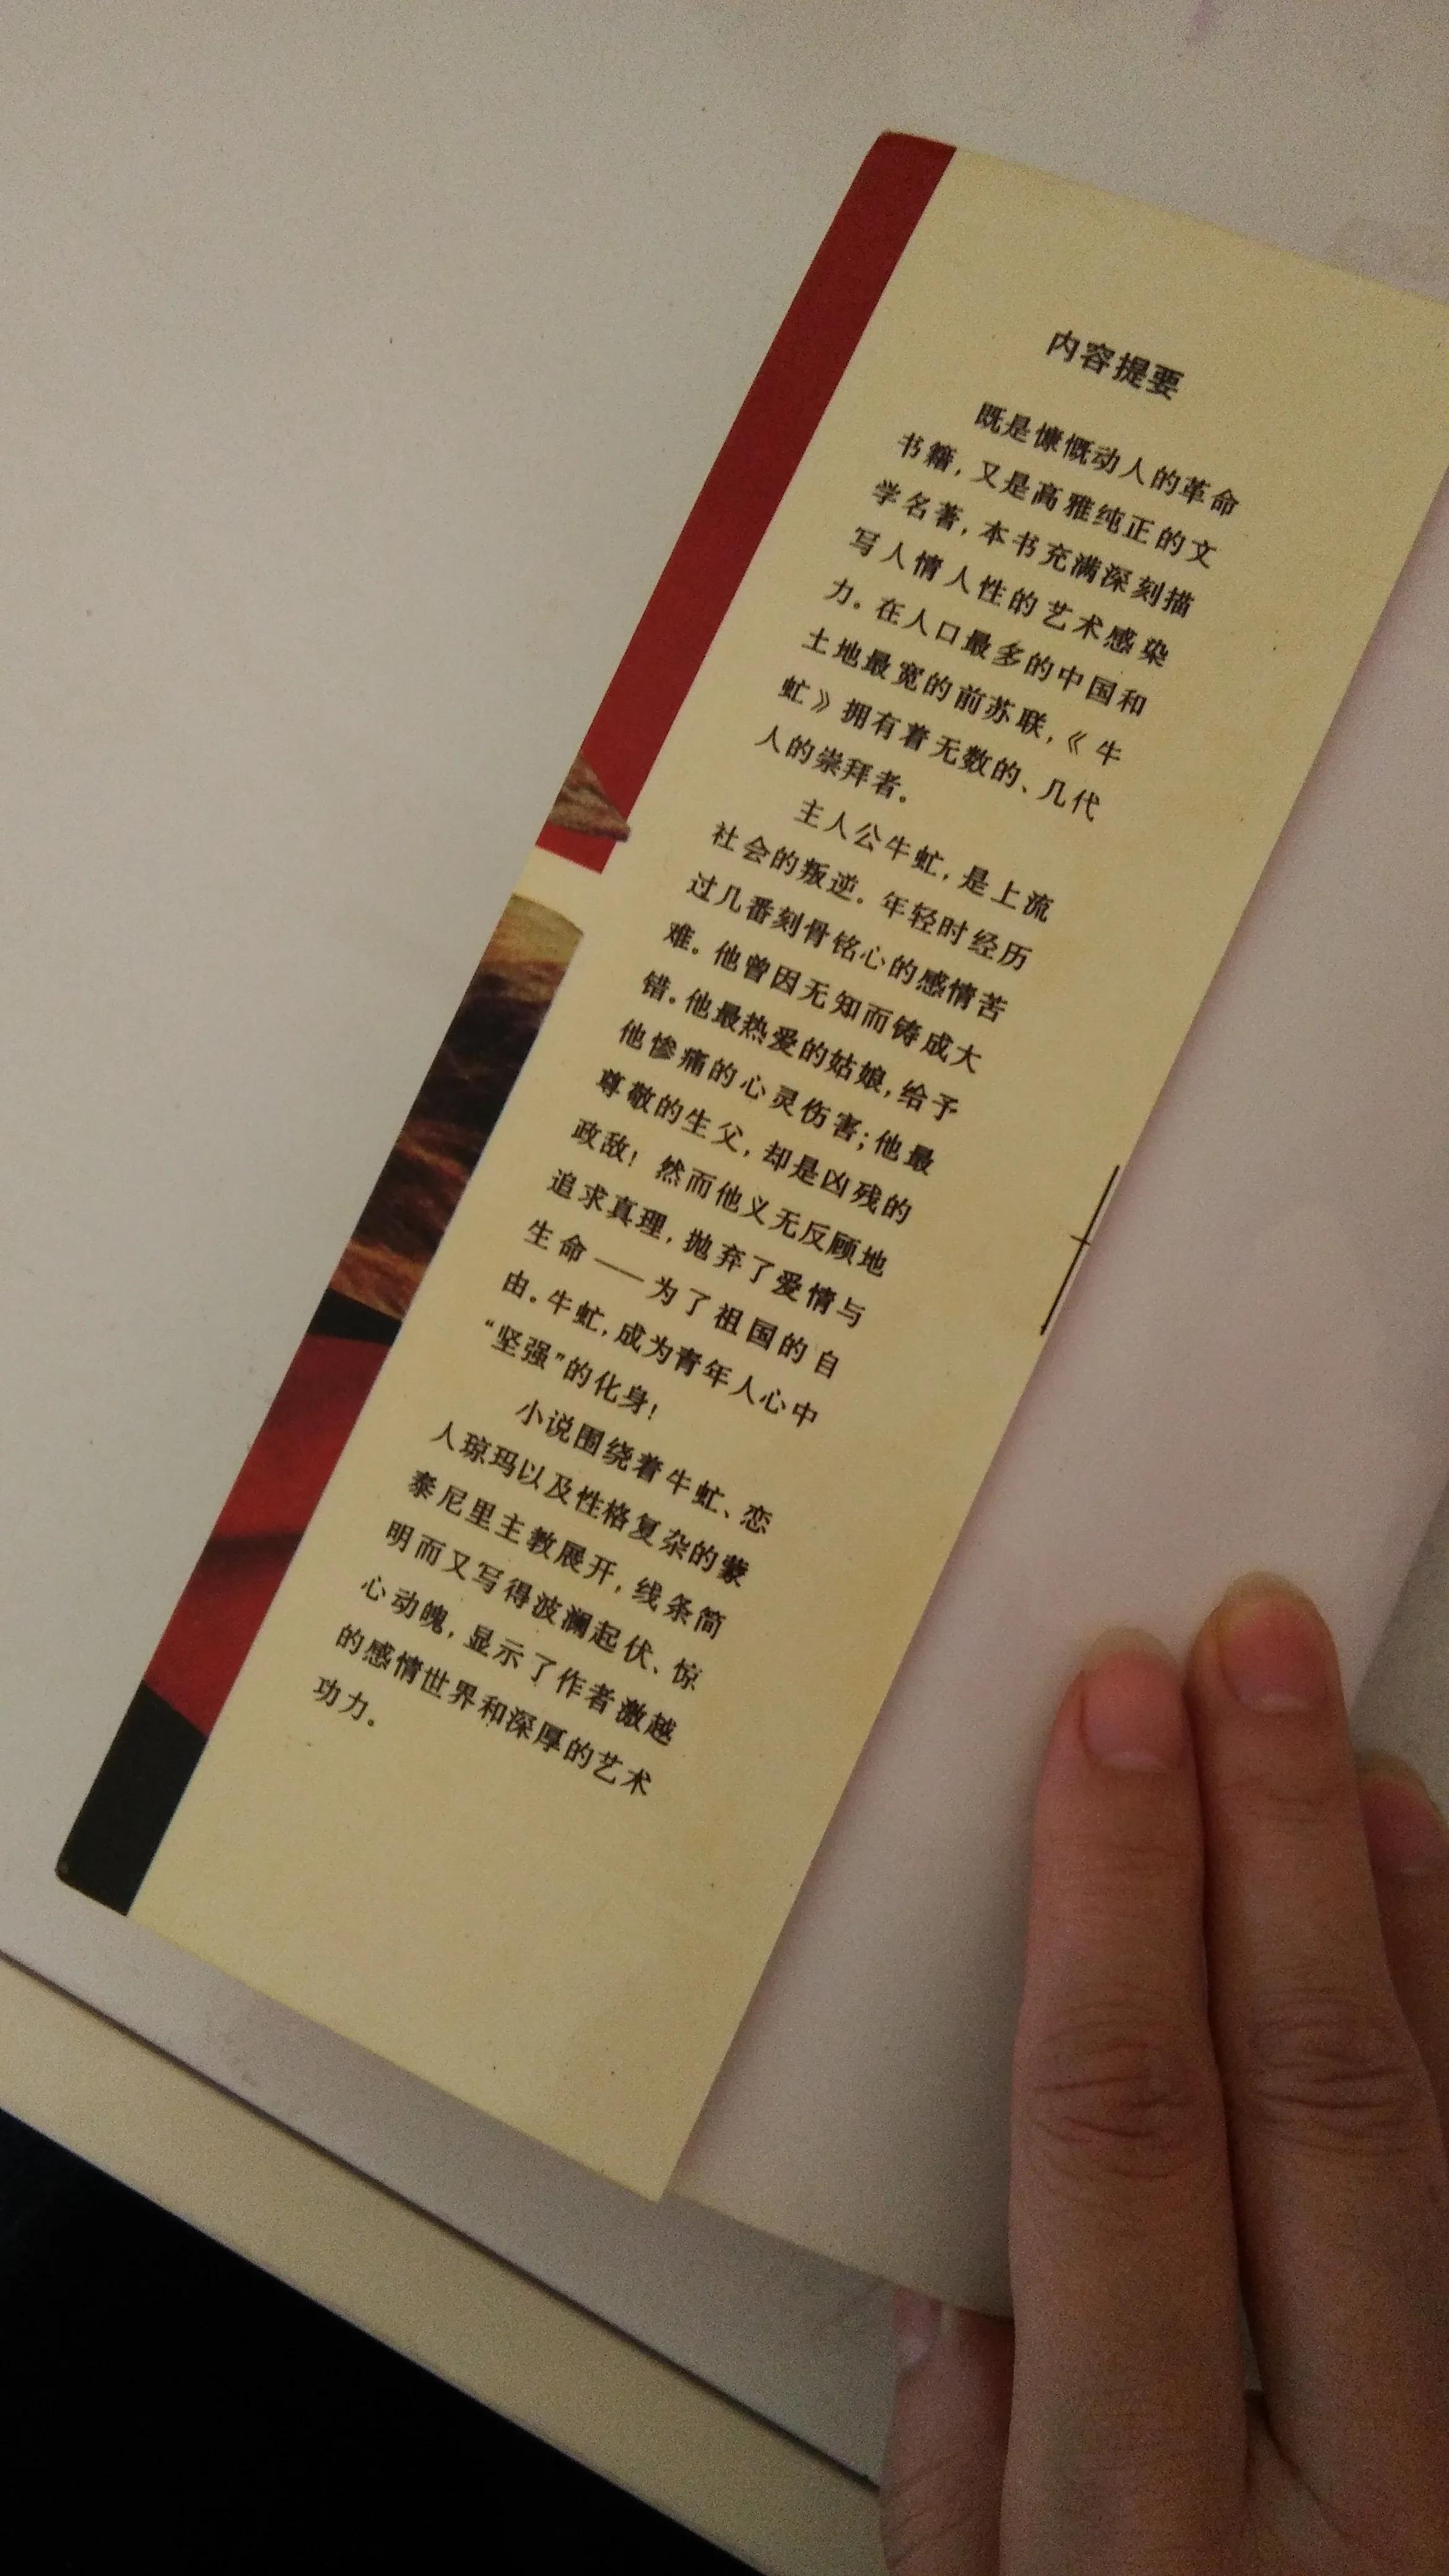 内容提要
既是慷慨动人的革命
书籍，又是高雅纯正的文
学名著，本书充满深刻描
写人情人性的艺术感染
力。在人口最多的中国和
土地最宽的前苏联，《牛
虻》拥有着无数的、几代
人的崇拜者。
主人公牛虻，是上流
社会的叛逆。年轻时经历
过几番刻骨铭心的感情苦
难。他曾因无知而铸成大
错。他最热爱的姑娘，给予
他惨痛的心灵伤害；他最
尊敬的生父，却是凶残的
政敌！然而他义无反顾地
追求真理，抛弃了爱情与
生命——为了祖国的自
由。牛虻，成为青年人心中
“坚强”的化身！
小说围绕着牛虻、恋
人琼玛以及性格复杂的蒙
泰尼里主教展开，线条简
明而又写得波澜起伏、惊
心动魄，显示了作者激越
的感情世界和深厚的艺术
功力。